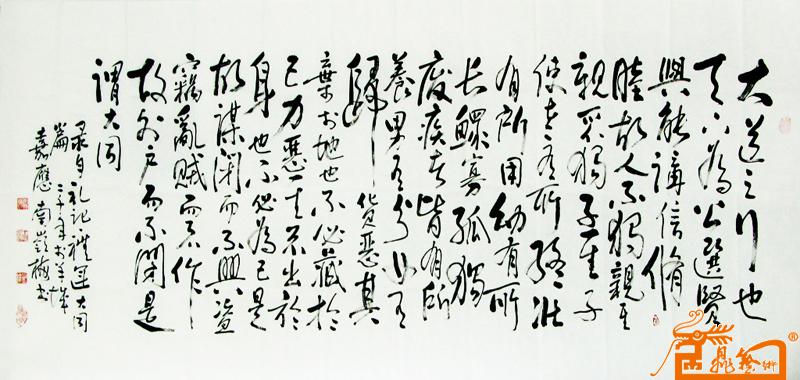 大道之行也
天下為公選賢
與能講信脩
睦故人不獨親其
親不獨子其子
使老有所終壯
有所用幼有所
長鰥寡孤獨
廢疾者皆有所
養男有分女有
歸貨惡其
棄於地也不必藏於
己力惡其不出於
身也不必為己是
故謀閉而不興盜
竊亂賊而不作
故外戶而不閉是
謂大同
录自礼记禮運大同
篇二千年於羊城
嘉應南嶺梅书